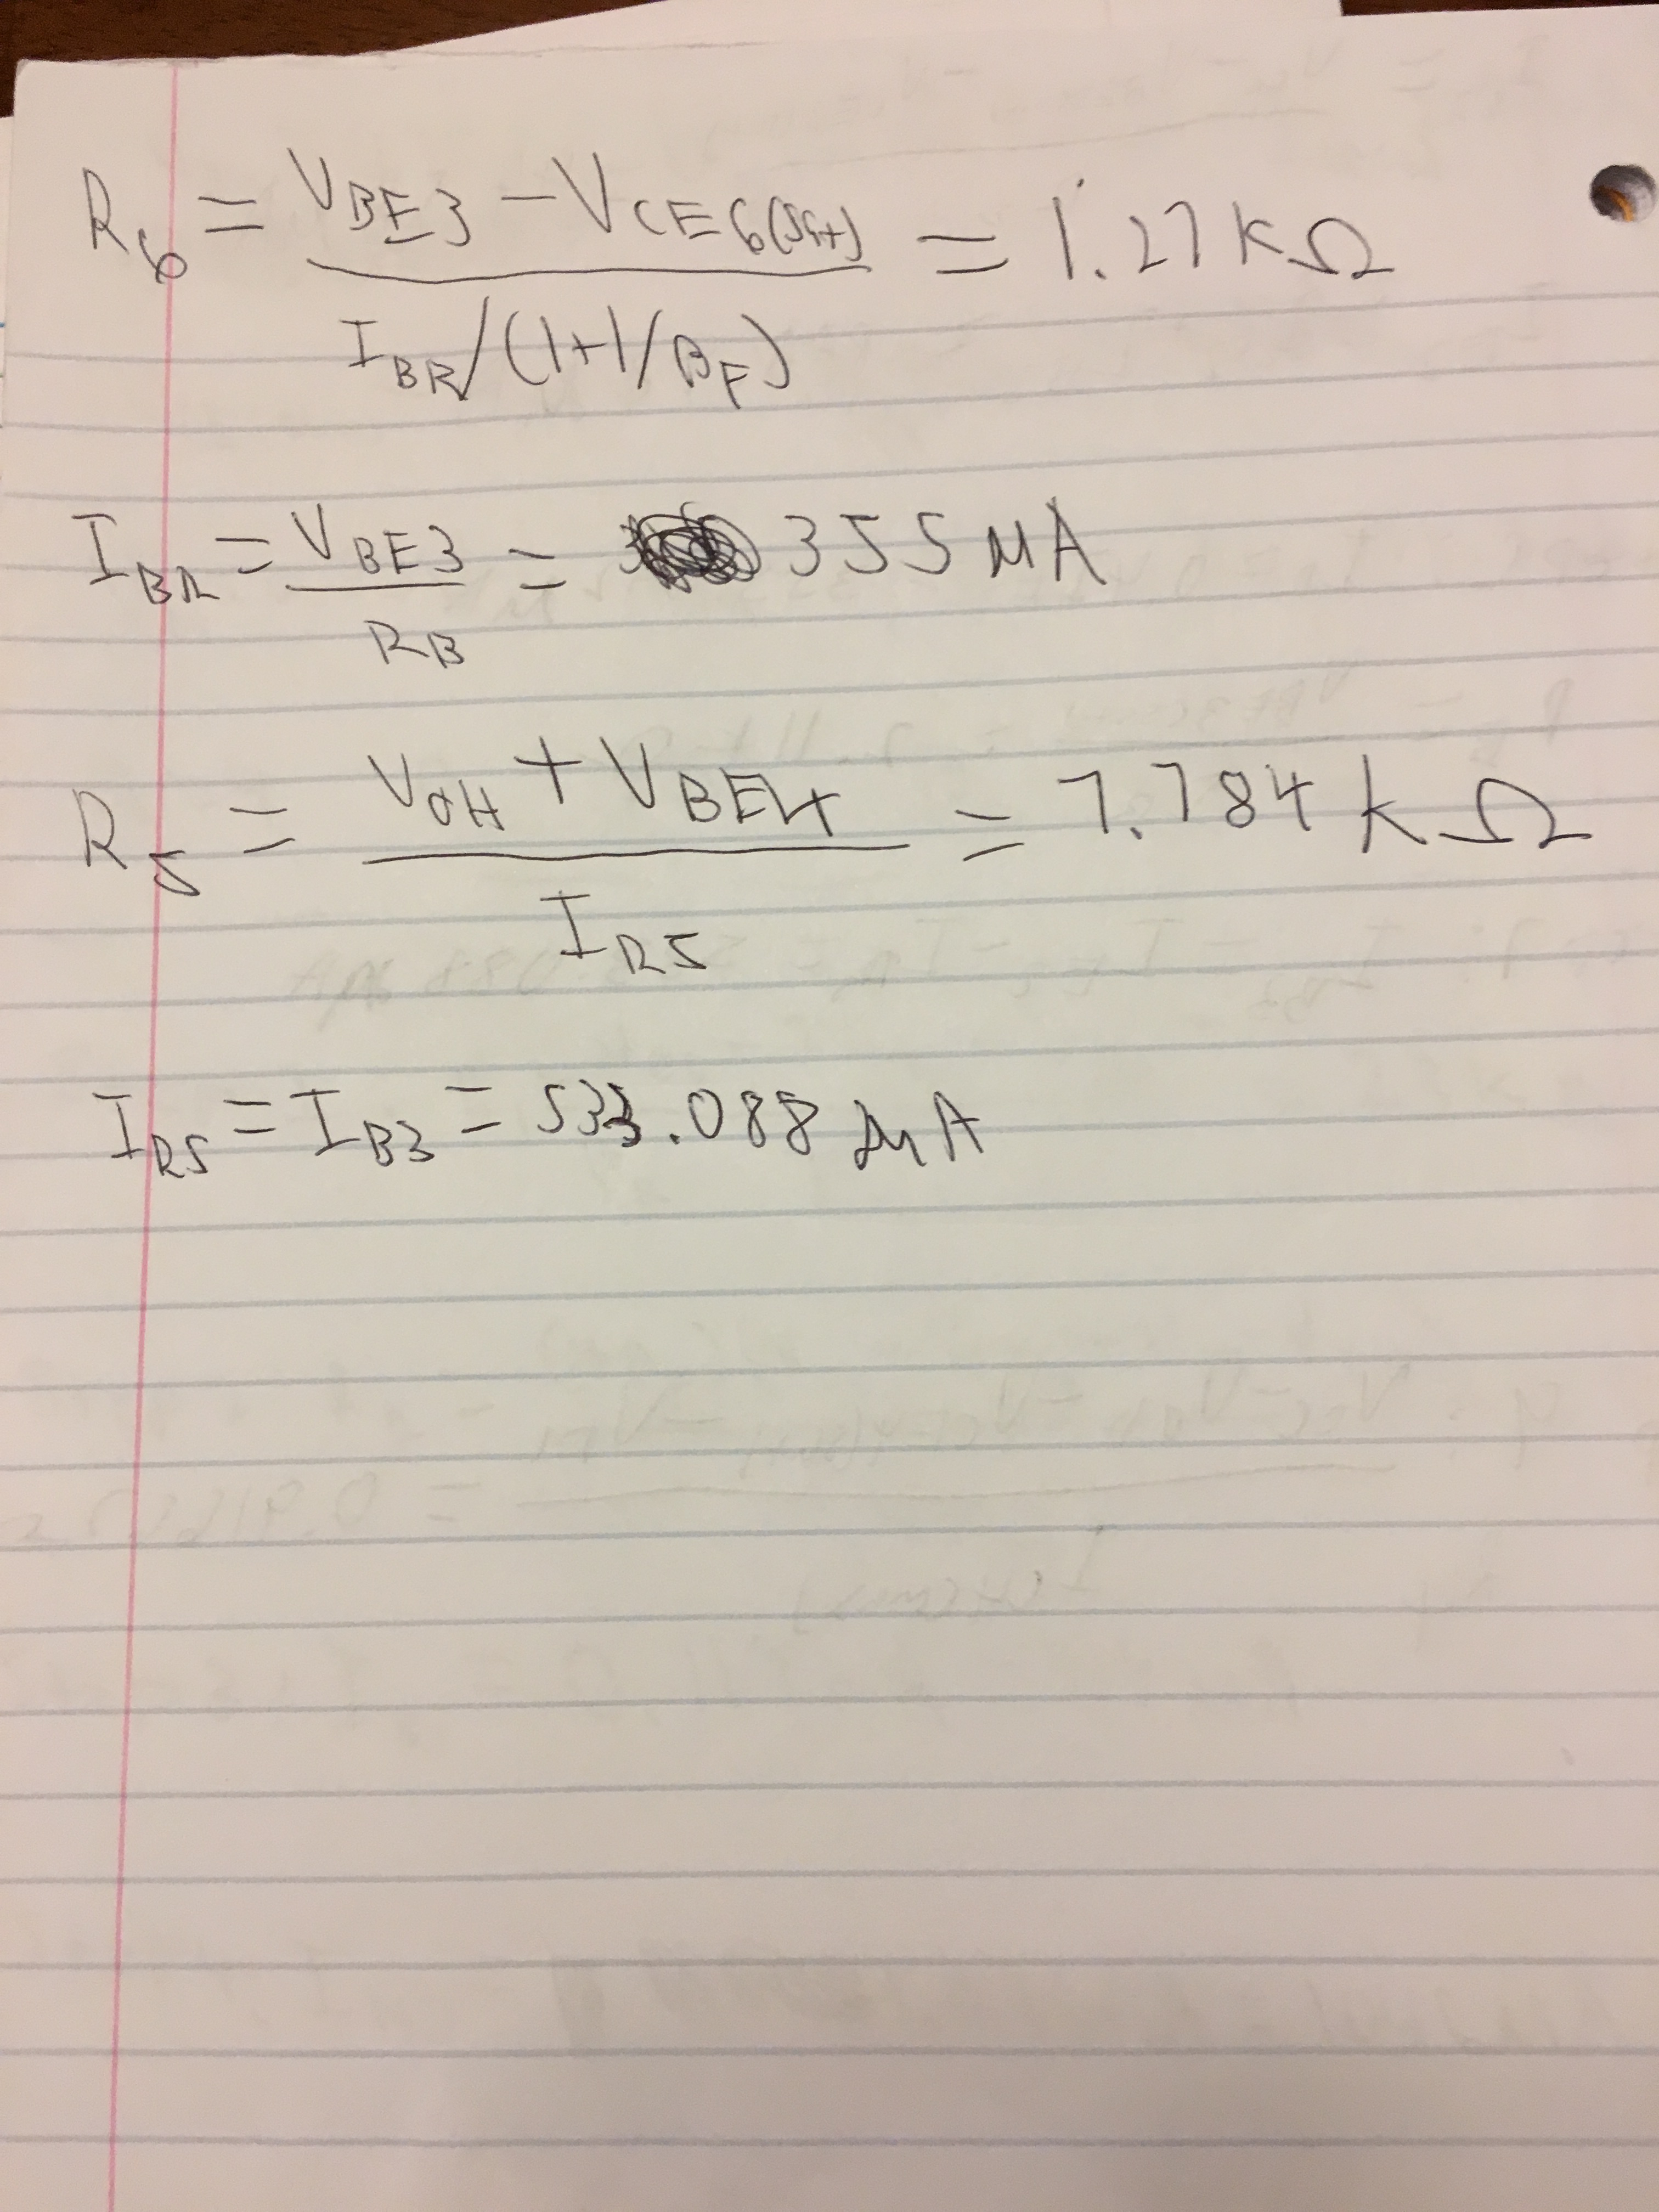 R6 = (VBE3 - VCE6(sat)) / (IBR/(1+1/βF)) = 1.27 kΩ
IBR = VBE3 / RB = 355 μA
R5 = (VOH + VBE4) / IR5 = 7.784 kΩ
IR5 = IB3 = 533.088 μA